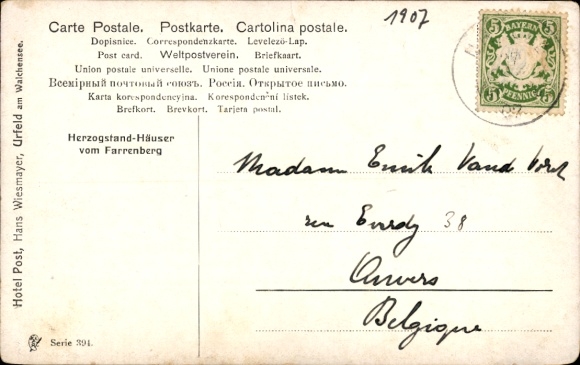 1907
Carte Postale. Postkarte. Cartolina postale.
Dopisnice. Correspondenzkarte. Levelező-Lap.
Post card. Weltpostverein. Briefkaart.
Union postale universelle. Unione postale universale.
Всемірный почтовый союзъ. Россія. Открытое письмо.
Karta korespondencyjna. Korespondenční listek.
Brefkort. Brevkort. Tarjeta postal.
Herzogstand-Häuser
vom Farrenberg
Hotel Post, Hans Wiesmayer, Urfeld am Walchensee.
5 BAYERN 5
5 PFENNIG 5
Madame Emile Vand
38
Anvers
Belgique
Serie 391.